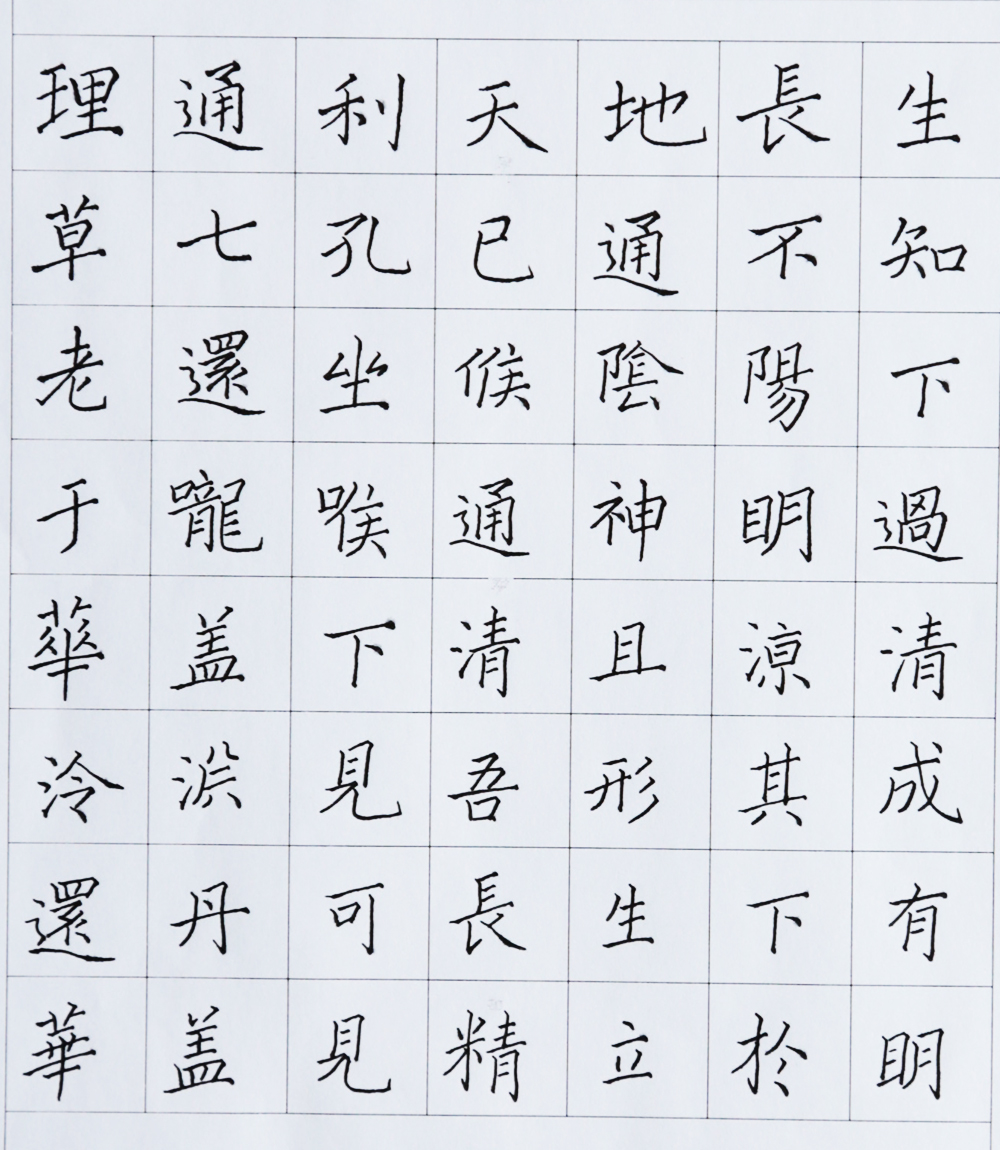 理通利天地長生
草七孔已通不知
老還坐候陰陽下
于嚨喉通神眀過
華盖下清且涼清
泠淵見吾形其成
還丹可長生下有
華盖見精立於眀